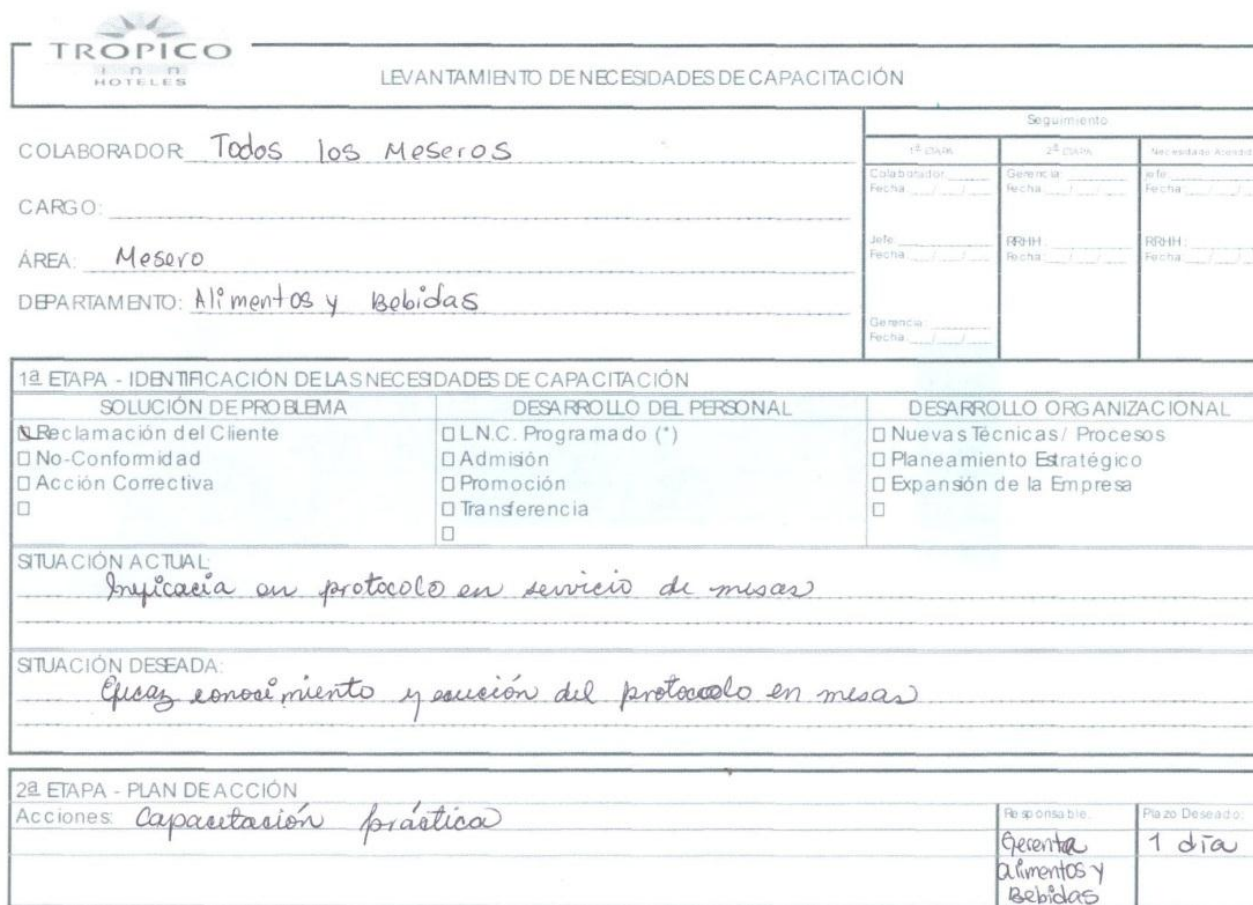 TROPICO
inn
HOTELES
LEVANTAMIENTO DE NECESIDADES DE CAPACITACIÓN
COLABORADOR: Todos los Meseros
CARGO:
ÁREA: Mesero
DEPARTAMENTO: Alimentos y Bebidas
Seguimiento
1ª ETAPA 2ª ETAPA Necesidade Atendid
Colaborador: Gerencia: Jefe:
Fecha: / / Fecha: / / Fecha: / /
Jefe: RRHH: RRHH:
Fecha: / / Fecha: / / Fecha: / /
Gerencia:
Fecha: / /
1ª ETAPA - IDENTIFICACIÓN DE LAS NECESIDADES DE CAPACITACIÓN
SOLUCIÓN DE PROBLEMA DESARROLLO DEL PERSONAL DESARROLLO ORGANIZACIONAL
Reclamación del Cliente L.N.C. Programado (*) Nuevas Técnicas/ Procesos
No-Conformidad Admisión Planeamiento Estratégico
Acción Correctiva Promoción Expansión de la Empresa
Transferencia
SITUACIÓN ACTUAL:
Ineficacia en protocolo en servicio de mesas
SITUACIÓN DESEADA:
Eficaz conocimiento y ecución del protocolo en mesas
2ª ETAPA - PLAN DE ACCIÓN
Acciones: Capacitación práctica
Responsable: Plazo Deseado:
Gerente 1 día
alimentos y
Bebidas